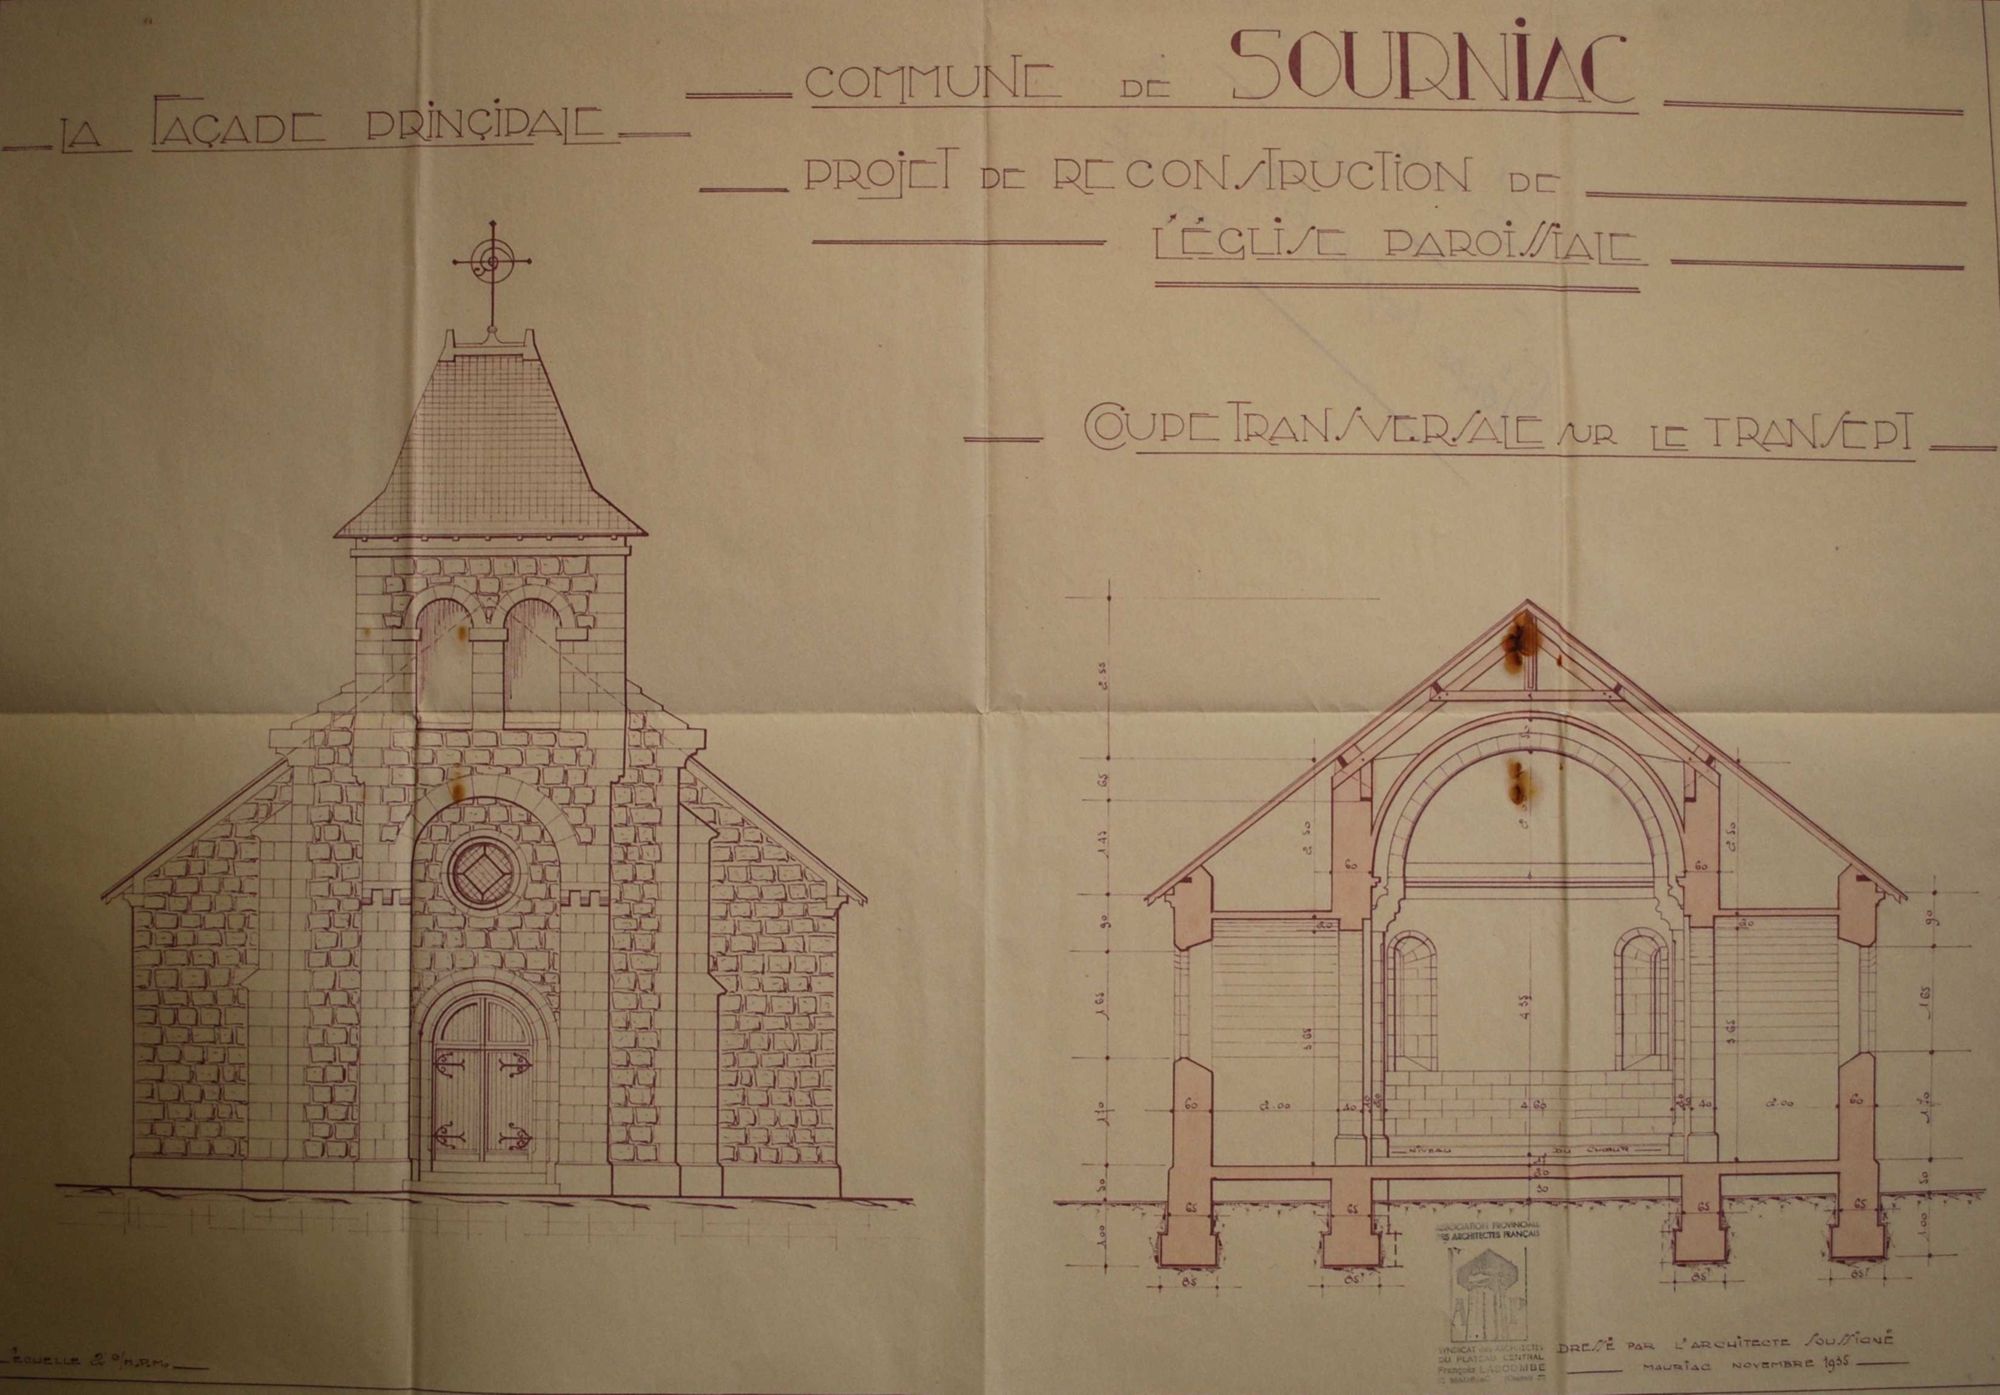 LA FAÇADE PRINÇIPALE
COMMUNE DE SOURNIAC
PROJET DE RECONSTRUCTION DE
L'ÉGLISE PAROISSIALE
COUPE TRANSVERSALE SUR LE TRANSEPT
2.50
65
1.45
90
1.65
1.10
50
1.00
2.50
60
20
3.65
4.55
2.50
60
20
3.65
90
1.65
1.10
50
1.00
60
2.00
40
4.60
40
2.00
60
NIVEAU DU CHŒUR
20
65
65
65
65
85
85
85
85
ASSOCIATION PROVINCIALE
DES ARCHITECTES FRANÇAIS
SYNDICAT DES ARCHITECTES
DU PLATEAU CENTRAL
François LACOMBE
MAURIAC
DRESSÉ PAR L'ARCHITECTE SOUSSIGNÉ
MAURIAC NOVEMBRE 1935
ÉCHELLE 2 %M.P.M.